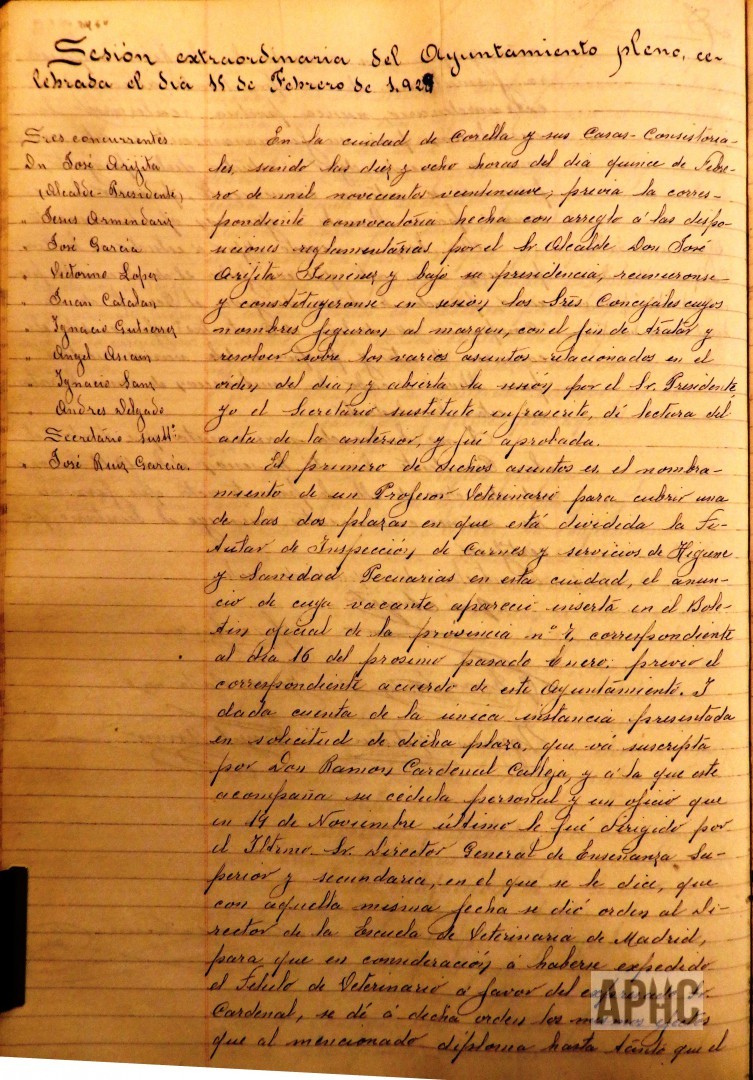 Sesión extraordinaria del Ayuntamiento pleno, ce-
lebrada el dia 15 de Febrero de 1.929
Sres concurrentes
Dn José Arijita
(Alcalde-Presidente)
" Jesus Armendariz
" José Garcia
" Victorino Lopez
" Juan Catalan
" Ignacio Gutierrez
" Angel Ascain
" Ignacio Sanz
" Andres Delgado
Secretário sustt:
" José Ruiz Garcia.
En la ciudad de Corella y sus Casas-Consistoria-
les, siendo las diez y ocho horas del dia quince de Febre-
ro de mil novecientos veintinueve; prévia la corres-
pondiente convocatoria hecha con arreglo á las dispo-
siciones reglamentárias por el Sr. Alcalde Don José
Arijita Jimenez y bajo su presidencia, reunieronse
y constituyeronse en sesión, los Sres Concejales cuyos
nombres figuran al margen, con el fin de tratar y
resolver sobre los varios asuntos relacionados en el
órden del dia; y abierta la sesión por el Sr. Presidente,
yo el Secretário sustituto infrascrito, dí lectura del
acta de la antérior, y fué aprobada.
El primero de dichos asuntos es el nombra-
miento de un Profesor Veterinario para cubrir una
de las dos plazas en que está dividida la Ti-
tular de Inspección de Carnes y servicios de Higiene
y Sanidad Pecuarias en esta ciudad, el anun-
cio de cuya vacante apareció insertá en el Bole-
tin oficial de la provincia nº 7, correspondiente
al dia 16 del prosimo pasado Enero; previo el
correspondiente acuerdo de este Ayuntamiento. I
dada cuenta de la única instancia presentada
en solicitud de dicha plaza, que vá suscripta
por Don Ramon Cardenal Calleja, y á la que este
acompaña su cédula personal y un oficio que
en 19 de Noviembre último le fué dirigido por
el Iltrmo. Sr. Director General de Enseñanza Su-
perior y secundaria, en el que se le dice, que
con aquella misma fecha se dió orden al Di-
rector de la Escuela de Veterinaria de Madrid,
para que en consideración á haberse expedido
el Titulo de Veterinario á favor del expresado Sr
Cardenal, se dé á dicha orden los mismos efectos
que al mencionado diploma hasta tanto que el
APHC